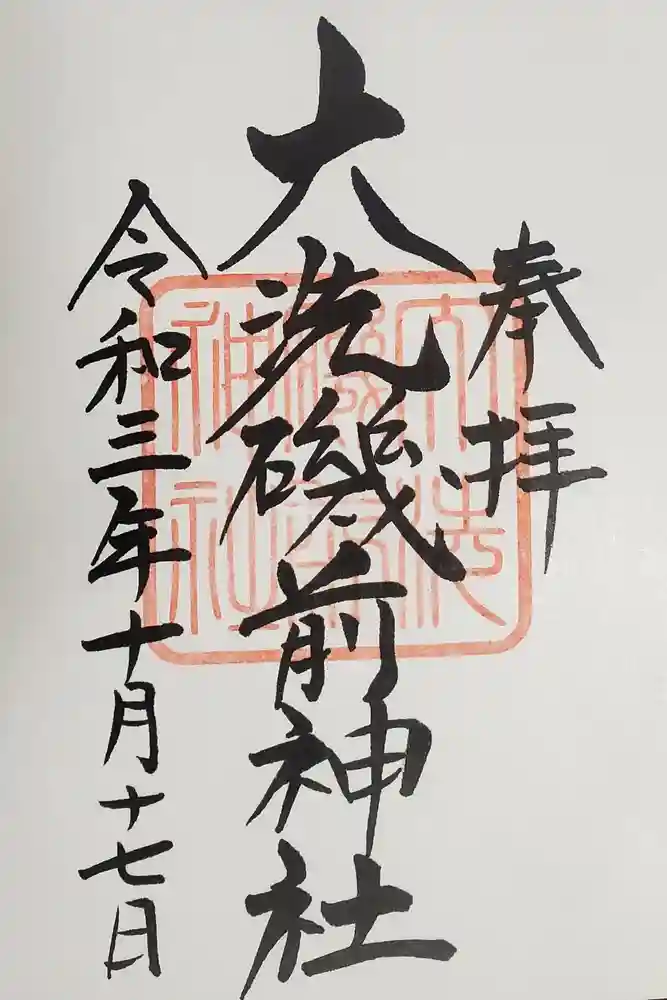 奉拝
大洗磯前神社
令和三年十月十七日
大洗
磯前
神社